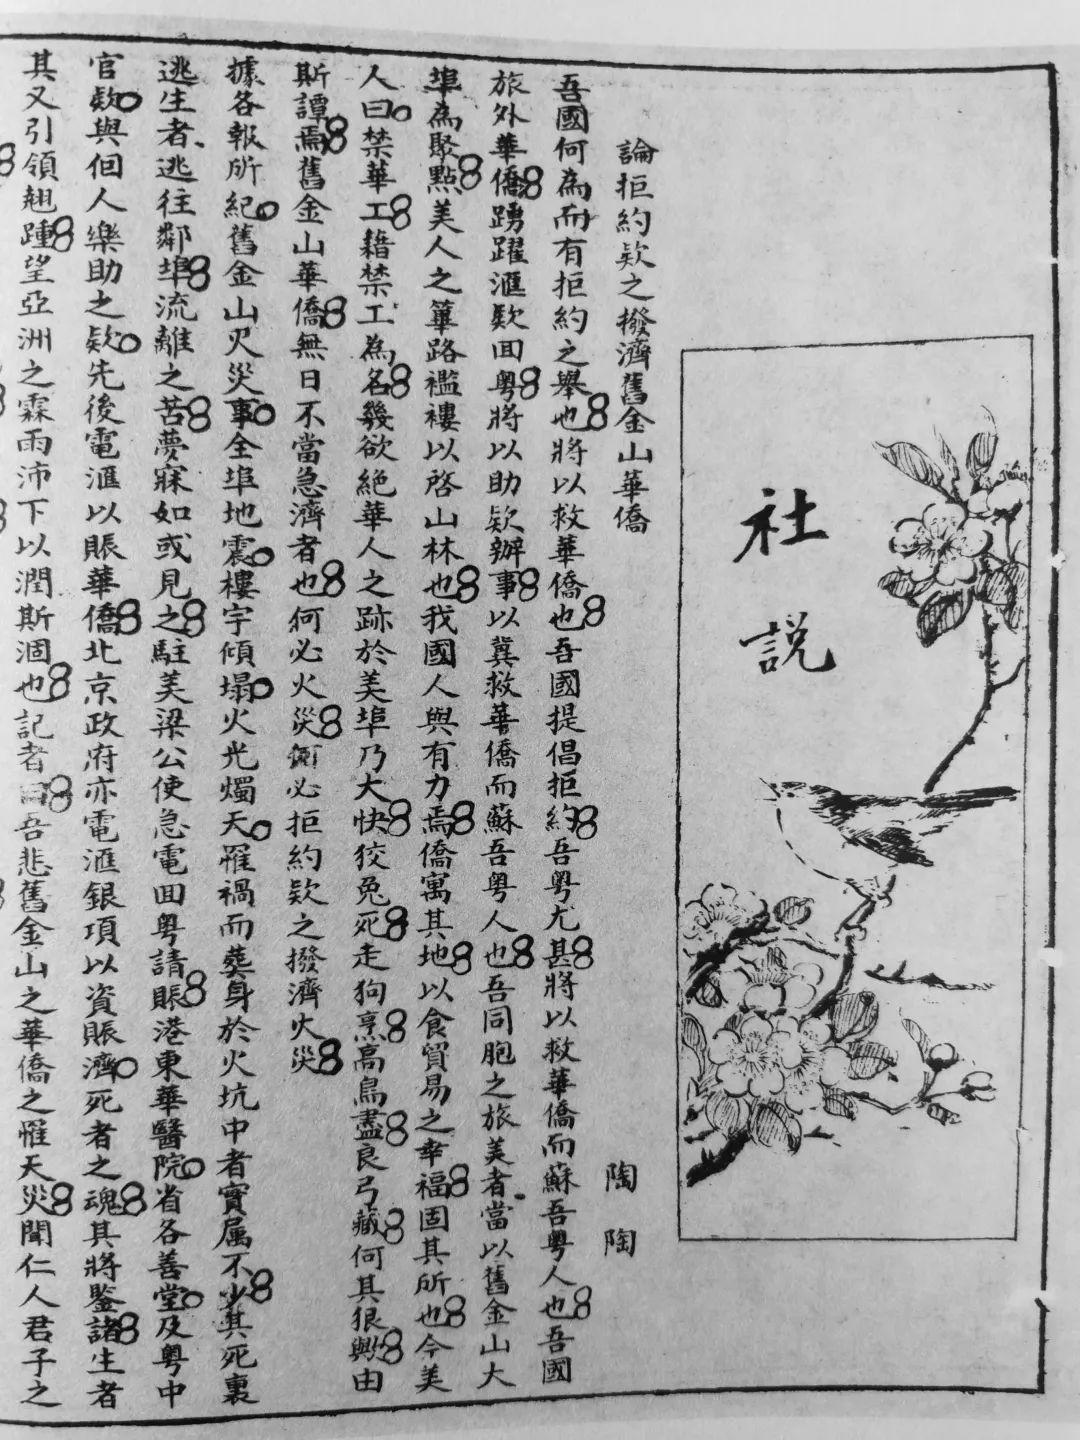 社說
論拒約欵之撥濟舊金山華僑
陶陶
吾國何為而有拒約之舉也將以救華僑也吾國提倡拒約吾粵尤甚將以救華僑而蘇吾粵人也吾國
旅外華僑踴躍滙欵囬粵將以助欵辦事以冀救華僑而蘇吾粵人也吾同胞之旅美者當以舊金山大
埠為聚點美人之篳路襤褸以啓山林也我國人與有力焉僑寓其地以食貿易之幸福固其所也今美
人曰禁華工藉禁工為名幾欲絶華人之跡於美埠乃大快狡兔死走狗烹高鳥盡良弓藏何其狠歟由
斯譚焉舊金山華僑無日不當急濟者也何必火災何必拒約欵之撥濟火災
據各報所紀舊金山火災事全埠地震樓宇傾塌火光燭天罹禍而葬身於火坑中者實属不少其死裏
逃生者逃往鄰埠流離之苦夢寐如或見之駐美梁公使急電囬粵請賑港東華醫院省各善堂及粵中
官欵與個人樂助之欵先後電滙以賬華僑北京政府亦電滙銀項以資賑濟死者之魂其將鑒諸生者
其又引領翹踵望亞洲之霖雨沛下以潤斯涸也記者曰吾悲舊金山之華僑之罹天災聞仁人君子之